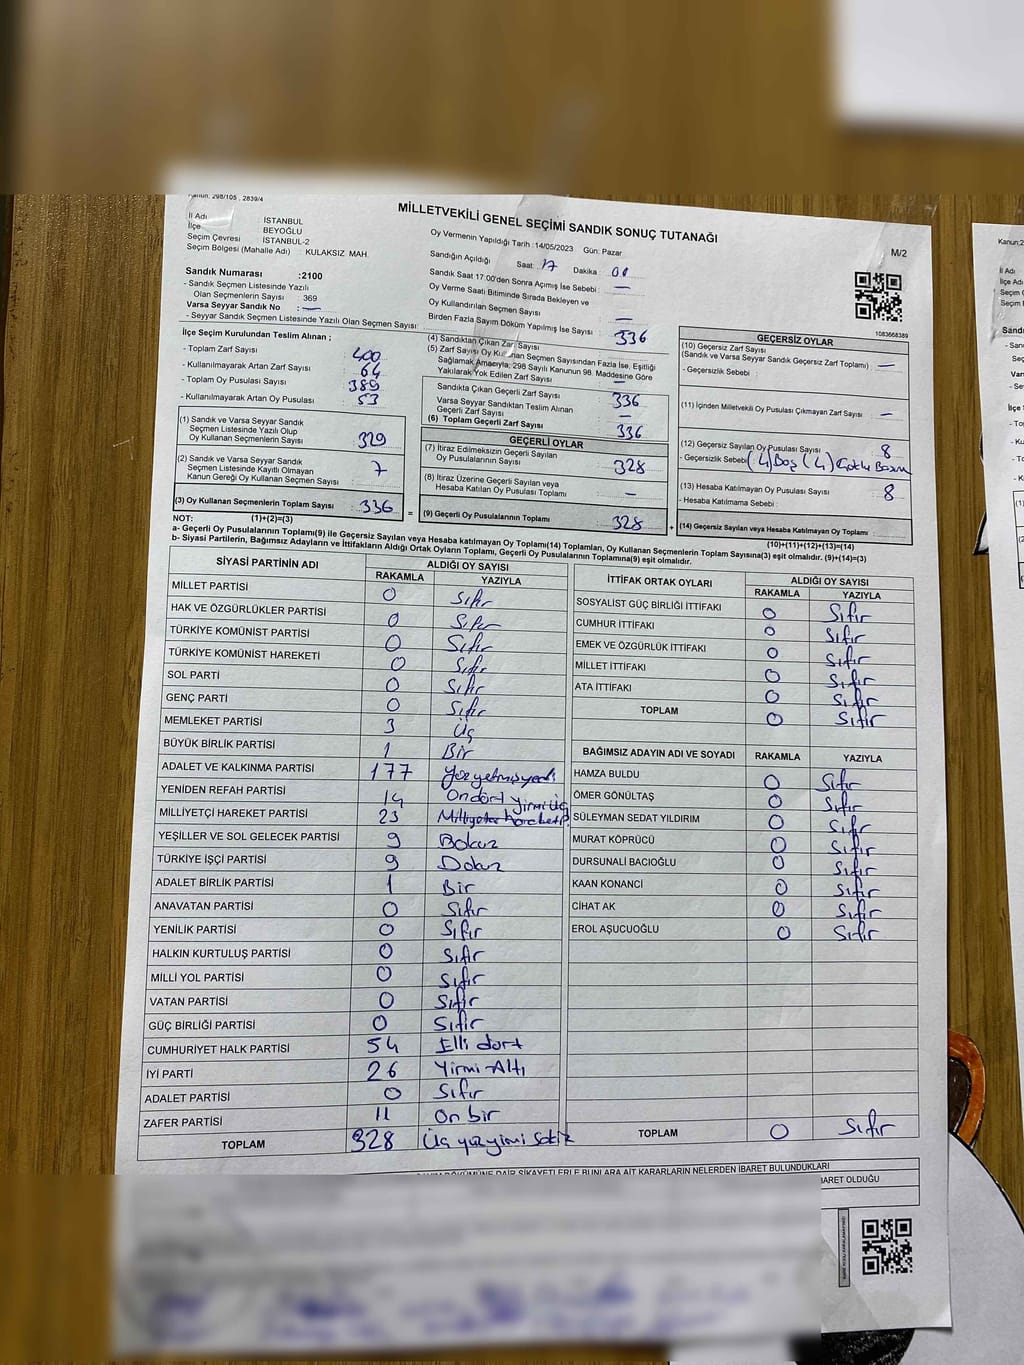 Kanun: 298/105 , 2839/4
MİLLETVEKİLİ GENEL SEÇİMİ SANDIK SONUÇ TUTANAĞI
M/2
İl Adı İSTANBUL
İlçe BEYOĞLU
Seçim Çevresi İSTANBUL-2
Seçim Bölgesi (Mahalle Adı) : KULAKSIZ MAH.
Sandık Numarası :2100
- Sandık Seçmen Listesinde Yazılı
Olan Seçmenlerin Sayısı : 369
Varsa Seyyar Sandık No : —
- Seyyar Sandık Seçmen Listesinde Yazılı Olan Seçmen Sayısı:
Oy Vermenin Yapıldığı Tarih :14/05/2023 Gün: Pazar
Sandığın Açıldığı Saat: 17 Dakika : 00
Sandık Saat 17:00'den Sonra Açımış İse Sebebi : —
Oy Verme Saati Bitiminde Sırada Bekleyen ve
Oy Kullandırılan Seçmen Sayısı —
Birden Fazla Sayım Döküm Yapılmış İse Sayısı :
1083668389
İlçe Seçim Kurulundan Teslim Alınan ;
- Toplam Zarf Sayısı 400
- Kullanılmayarak Artan Zarf Sayısı 64
- Toplam Oy Pusulası Sayısı 389
- Kullanılmayarak Artan Oy Pusulası 53
(1) Sandık ve Varsa Seyyar Sandık
Seçmen Listesinde Yazılı Olup
Oy Kullanan Seçmenlerin Sayısı 329
(2) Sandık ve Varsa Seyyar Sandık
Seçmen Listesinde Kayıtlı Olmayan
Kanun Gereği Oy Kullanan Seçmen Sayısı : 7
(3) Oy Kullanan Seçmenlerin Toplam Sayısı : 336
(1)+(2)=(3)
(4) Sandıktan Çıkan Zarf Sayısı 336
(5) Zarf Sayısı Oy Kullanan Seçmen Sayısından Fazla İse, Eşitliği
Sağlamak Amacıyla, 298 Sayılı Kanunun 98. Maddesine Göre
Yakılarak Yok Edilen Zarf Sayısı —
Sandıkta Çıkan Geçerli Zarf Sayısı : 336
Varsa Seyyar Sandıktan Teslim Alınan
Geçerli Zarf Sayısı —
(6) Toplam Geçerli Zarf Sayısı 336
GEÇERLİ OYLAR
(7) İtiraz Edilmeksizin Geçerli Sayılan
Oy Pusulalarının Sayısı : 328
(8) İtiraz Üzerine Geçerli Sayılan veya
Hesaba Katılan Oy Pusulası Toplamı : —
(9) Geçerli Oy Pusulalarının Toplamı : 328
GEÇERSİZ OYLAR
(10) Geçersiz Zarf Sayısı
(Sandık ve Varsa Seyyar Sandık Geçersiz Zarf Toplamı) —
- Geçersizlik Sebebi :
(11) İçinden Milletvekili Oy Pusulası Çıkmayan Zarf Sayısı —
(12) Geçersiz Sayılan Oy Pusulası Sayısı : 8
- Geçersizlik Sebebi (4) Boş (4)
(13) Hesaba Katılmayan Oy Pusulası Sayısı : 8
- Hesaba Katılmama Sebebi :
(14) Geçersiz Sayılan veya Hesaba Katılmayan Oy Toplamı :
(10)+(11)+(12)+(13)=(14)
NOT:
a- Geçerli Oy Pusulalarının Toplamı(9) ile Geçersiz Sayılan veya Hesaba Katılmayan Oy Toplamı(14) Toplamları, Oy Kullanan Seçmenlerin Toplam Sayısına(3) eşit olmalıdır. (9)+(14)=(3)
b- Siyasi Partilerin, Bağımsız Adayların ve İttifakların Aldığı Ortak Oyların Toplamı, Geçerli Oy Pusulalarının Toplamına(9) eşit olmalıdır.
SİYASİ PARTİNİN ADI ALDIĞI OY SAYISI
RAKAMLA YAZIYLA
MİLLET PARTİSİ 0 Sıfır
HAK VE ÖZGÜRLÜKLER PARTİSİ 0 Sıfır
TÜRKİYE KOMÜNİST PARTİSİ 0 Sıfır
TÜRKİYE KOMÜNİST HAREKETİ 0 Sıfır
SOL PARTİ 0 Sıfır
GENÇ PARTİ 0 Sıfır
MEMLEKET PARTİSİ 3 Üç
BÜYÜK BİRLİK PARTİSİ 1 Bir
ADALET VE KALKINMA PARTİSİ 177 Yüzyetmişyedi
YENİDEN REFAH PARTİSİ 14 Ondört
MİLLİYETÇİ HAREKET PARTİSİ 23 yirmi üç
YEŞİLLER VE SOL GELECEK PARTİSİ 9 Dokuz
TÜRKİYE İŞÇİ PARTİSİ 9 Dokuz
ADALET BİRLİK PARTİSİ 1 Bir
ANAVATAN PARTİSİ 0 Sıfır
YENİLİK PARTİSİ 0 Sıfır
HALKIN KURTULUŞ PARTİSİ 0 Sıfır
MİLLİ YOL PARTİSİ 0 Sıfır
VATAN PARTİSİ 0 Sıfır
GÜÇ BİRLİĞİ PARTİSİ 0 Sıfır
CUMHURİYET HALK PARTİSİ 54 Elli dört
İYİ PARTİ 26 Yirmi Altı
ADALET PARTİSİ 0 Sıfır
ZAFER PARTİSİ 11 On bir
TOPLAM 328 Üç yüz yirmi sekiz
İTTİFAK ORTAK OYLARI ALDIĞI OY SAYISI
RAKAMLA YAZIYLA
SOSYALİST GÜÇ BİRLİĞİ İTTİFAKI 0 Sıfır
CUMHUR İTTİFAKI 0 Sıfır
EMEK VE ÖZGÜRLÜK İTTİFAKI 0 Sıfır
MİLLET İTTİFAKI 0 Sıfır
ATA İTTİFAKI 0 Sıfır
TOPLAM 0 Sıfır
BAĞIMSIZ ADAYIN ADI VE SOYADI RAKAMLA YAZIYLA
HAMZA BULDU 0 Sıfır
ÖMER GÖNÜLTAŞ 0 Sıfır
SÜLEYMAN SEDAT YILDIRIM 0 Sıfır
MURAT KÖPRÜCÜ 0 Sıfır
DURSUNALİ BACIOĞLU 0 Sıfır
KAAN KONANCİ 0 Sıfır
CİHAT AK 0 Sıfır
EROL AŞUCUOĞLU 0 Sıfır
TOPLAM 0 Sıfır
DÖKÜMÜNE DAİR ŞİKAYETLERLE BUNLARA AİT KARARLARIN NELERDEN İBARET BULUNDUKLARI
İBARET OLDUĞU